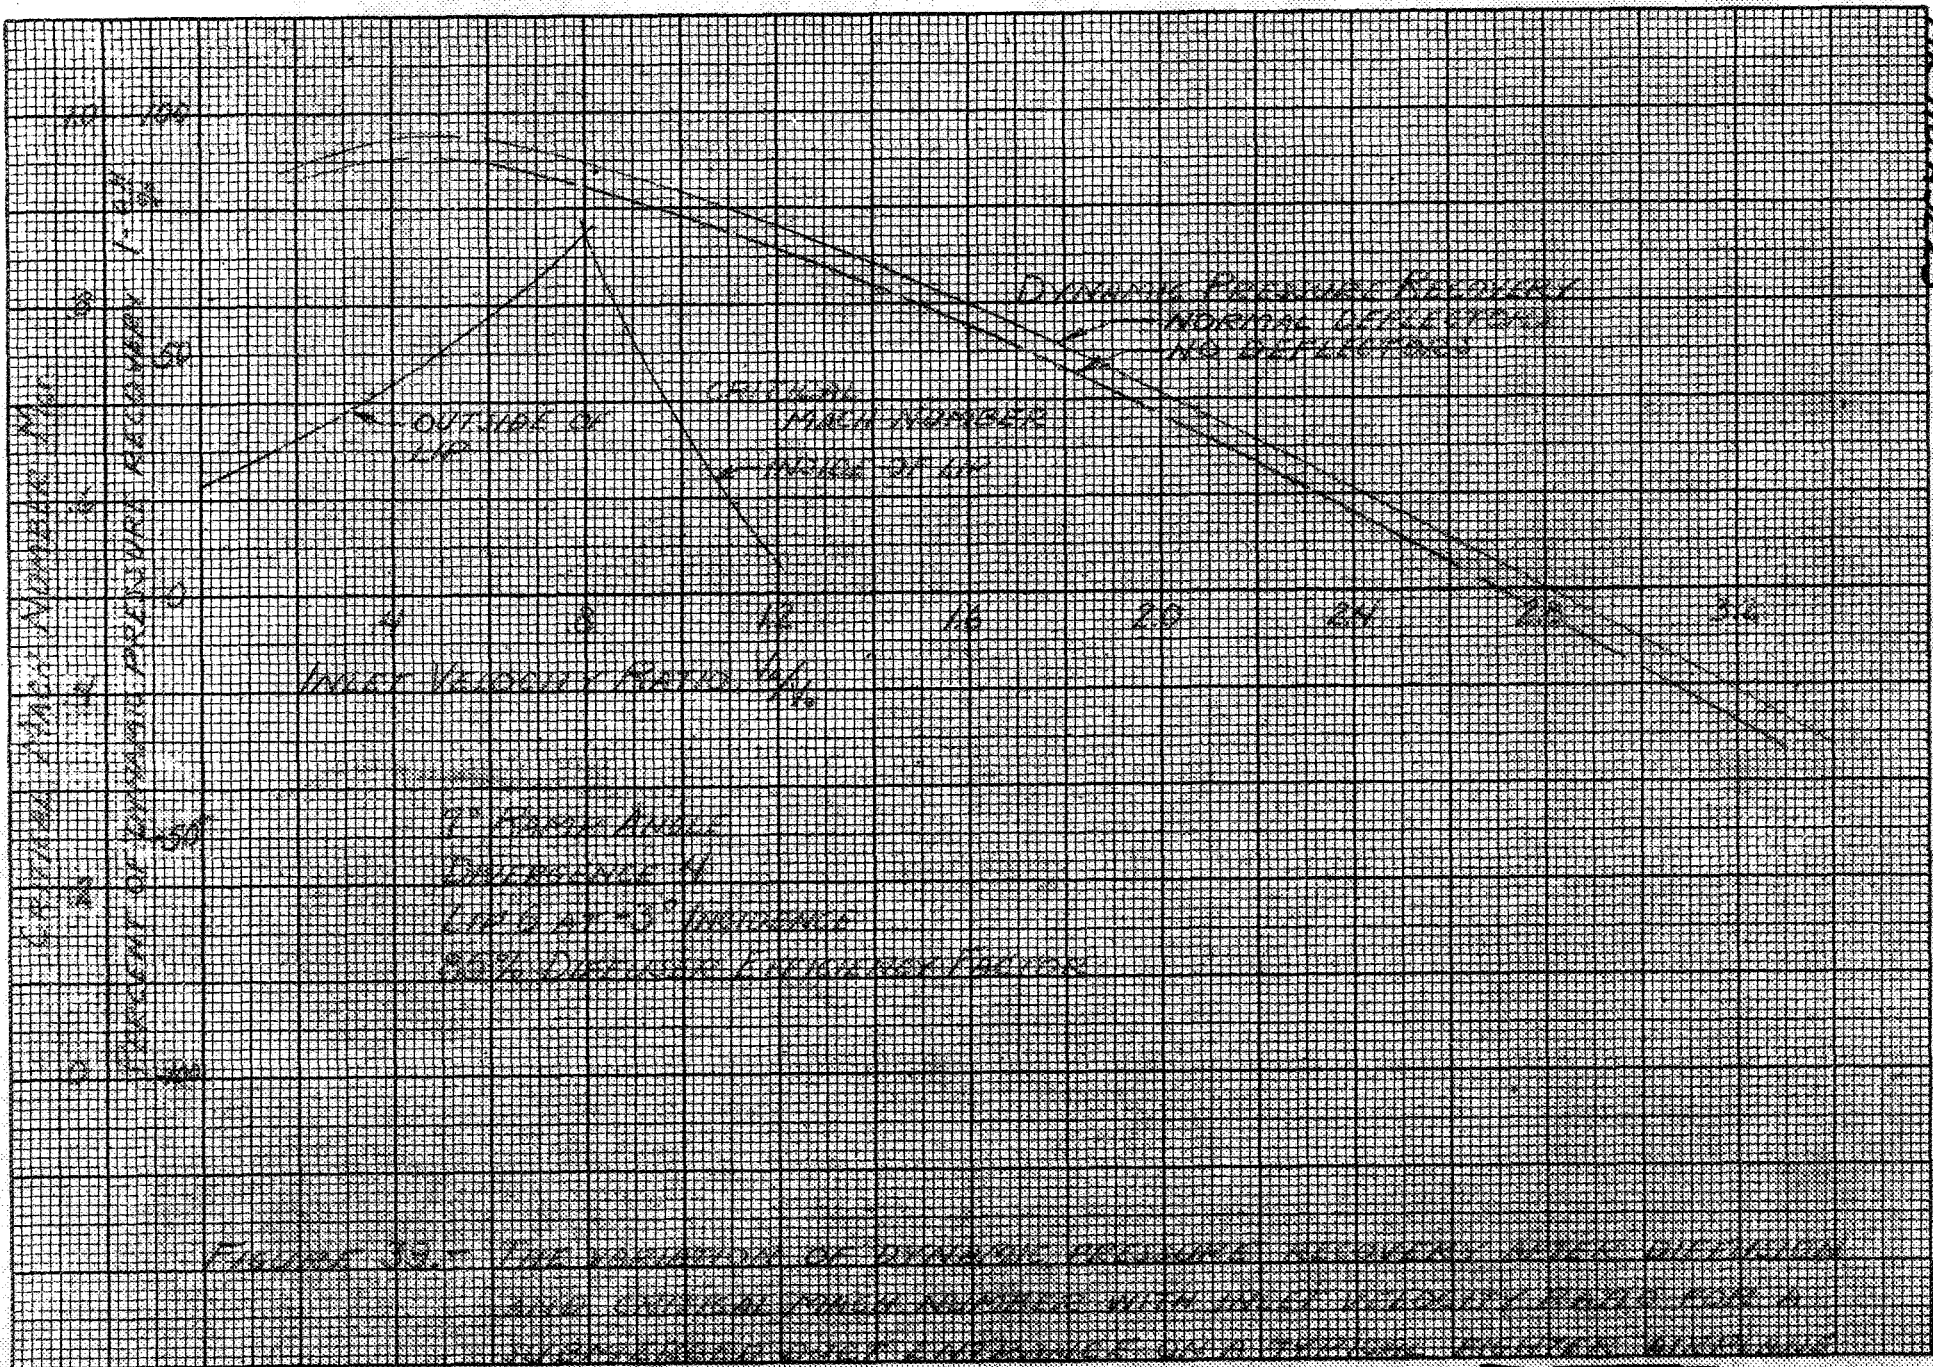 1.0 100
CRITICAL MACH NUMBER Mcr
PERCENT OF DYNAMIC PRESSURE RECOVERY 1-
.8
50
.6
0
.4
-50
.2
0 -100
DYNAMIC PRESSURE RECOVERY
NORMAL DEFLECTORS
NO DEFLECTORS
CRITICAL
MACH NUMBER
OUTSIDE OF
LIP
INSIDE OF LIP
.4 .8 1.2 1.6 2.0 2.4 2.8 3.2
INLET VELOCITY RATIO V₁/V₀
7° RAMP ANGLE
DIVERGENCE 4
LIP 6 AT -3° INCIDENCE
DIFFUSER EFFICIENCY FACTOR
FIGURE THE VARIATION OF DYNAMIC PRESSURE RECOVERY AFTER DIFFUSION
AND CRITICAL MACH NUMBER WITH INLET VELOCITY RATIO FOR A
ENTRANCE ON A TYPICAL FIGHTER AIRPLANE